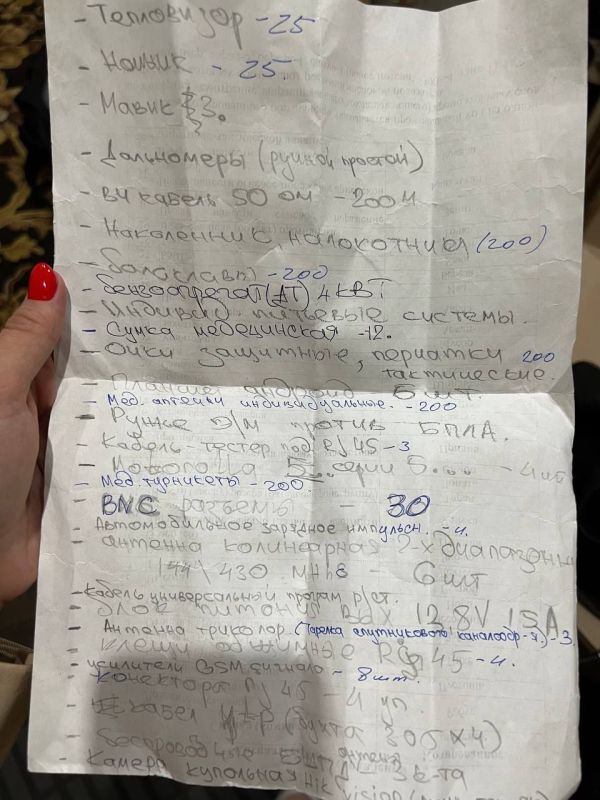 - Тепловизор - 25
- Ночник - 25
- Мавик 3.
- Дальномеры (ручной простой)
- ВЧ кабель 50 ом - 200 м
- Наколенники, налокотники (200)
- Балаклавы - 200
- бензоагрегат (ДТ) 4 кВТ
- Индивид. питьевые системы.
- Сумка медецинская - 12.
- Очки защитные, перчатки 200
тактические.
- Планшет андроид 6 шт.
- Мед. аптечки индивидуальные. - 200
- Ружье Э/М против БПЛА.
- Кабель-тестер под RJ 45 - 3
- 5 серии 5... - 4 шт
- Мед. турникеты - 200
BNC разъемы - 30
- Автомобильное зарядное импульсн. - 4.
- антенна колинарная 2-х диапазонн
144\430 MHz - 6 шт
- Кабель универсальный програм р/ст.
- Блок питания вых 13,8V 15A
- Антенна триколор (Тарелка спутникового - 3
- клещи обжимные Rj 45 - 4.
- усилители GSM сигнала - 8 шт.
- конектора Rj 45 - 4 уп.
- кабел УТР (бухта 305 х 4)
- антенз 3 к-та
- Камера купольная Hik Vision